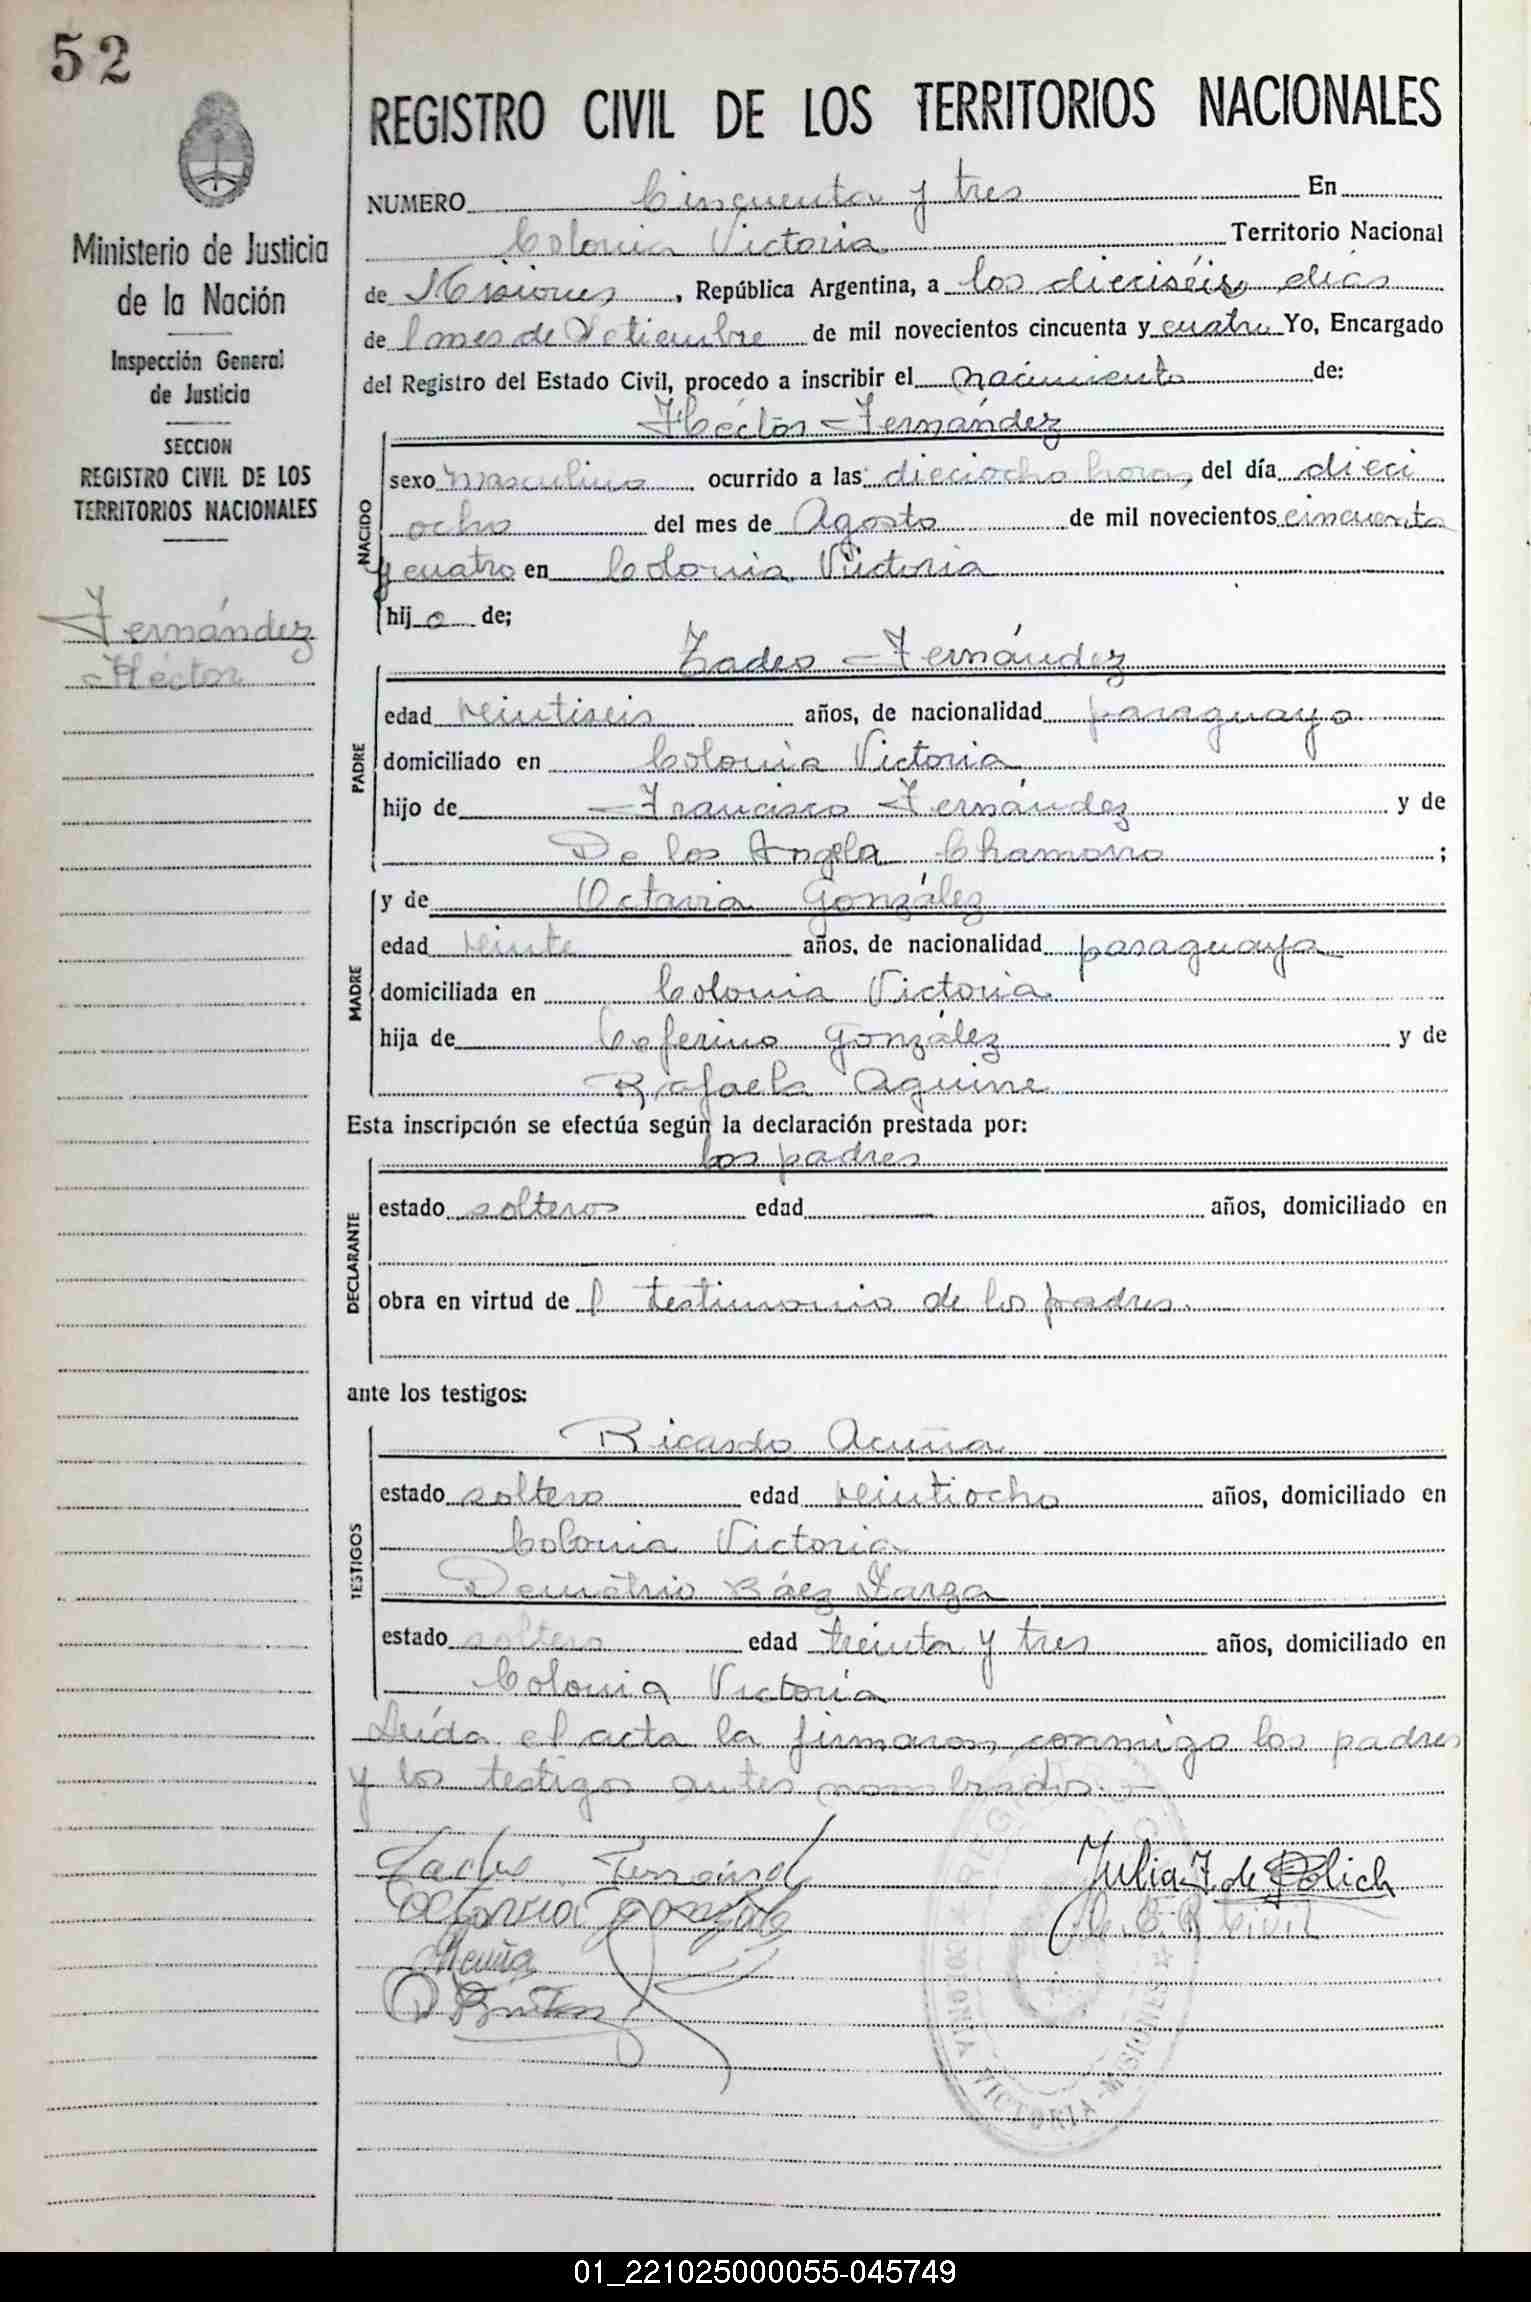 52
REGISTRO CIVIL DE LOS TERRITORIOS NACIONALES
Ministerio de Justicia
de la Nación
Inspección General
de Justicia
SECCION
REGISTRO CIVIL DE LOS
TERRITORIOS NACIONALES
Fernández
Héctor
NUMERO Cincuenta y tres En
Colonia Victoria Territorio Nacional
de Misiones, República Argentina, a los dieciséis días
de l mes de Setiembre de mil novecientos cincuenta y cuatro Yo, Encargado
del Registro del Estado Civil, procedo a inscribir el nacimiento de:
NACIDO
Héctor Fernández
sexo masculino ocurrido a las dieciocho horas, del día dieci
ocho del mes de Agosto de mil novecientos cincuenta
y cuatro en Colonia Victoria
hijo de;
PADRE
Fernández
edad veintiseis años, de nacionalidad paraguayo
domiciliado en Colonia Victoria
hijo de Francisco Fernández y de
De los Angela Chamorro ;
MADRE
y de Octavia González
edad veinte años, de nacionalidad paraguaya
domiciliada en Colonia Victoria
hija de Ceferino González y de
Rafaela Aguirre
Esta inscripción se efectúa según la declaración prestada por:
DECLARANTE
los padres
estado solteros edad — años, domiciliado en
obra en virtud de l testimonio de los padres.
ante los testigos:
TESTIGOS
Ricardo Acuña
estado soltero edad veintiocho años, domiciliado en
Colonia Victoria
Demetrio Báez
estado soltero edad treinta y tres años, domiciliado en
Colonia Victoria
Leída el acta la firmaron conmigo los padres
y los testigos antes nombrados.—
Julia F. de Polich
Civil
Acuña
COLONIA VICTORIA - MISIONES
01_221025000055-045749